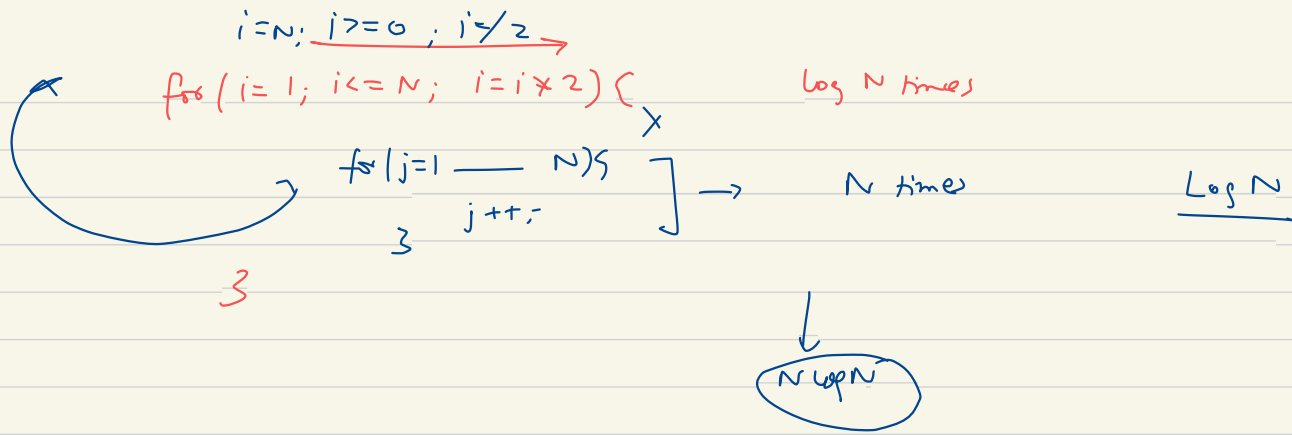 i=N; i>=0 ; i=/2
for( i= 1; i<= N; i=i*2){ log N times
x
for(j=1 —— N){ → N times Log N
j ++;
}
}
↓
N log N